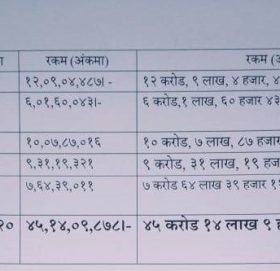 रकम (अंकमा)
१२,०९,०४,४८७/- १२ करोड, ९ लाख, ४ हजार,
६,०१,६०,०४३/- ६ करोड,१ लाख, ६० हजार ४३
१०,०७,८७,०१६ १० करोड, ७ लाख, ८७ हजार
९,३१,१९,३२१ ९ करोड, ३१ लाख, १९
७,६४,३९,०११ ७ करोड ६४ लाख ३९ हजार
४५,१४,०९,८७८/- ४५ करोड १४ लाख ९